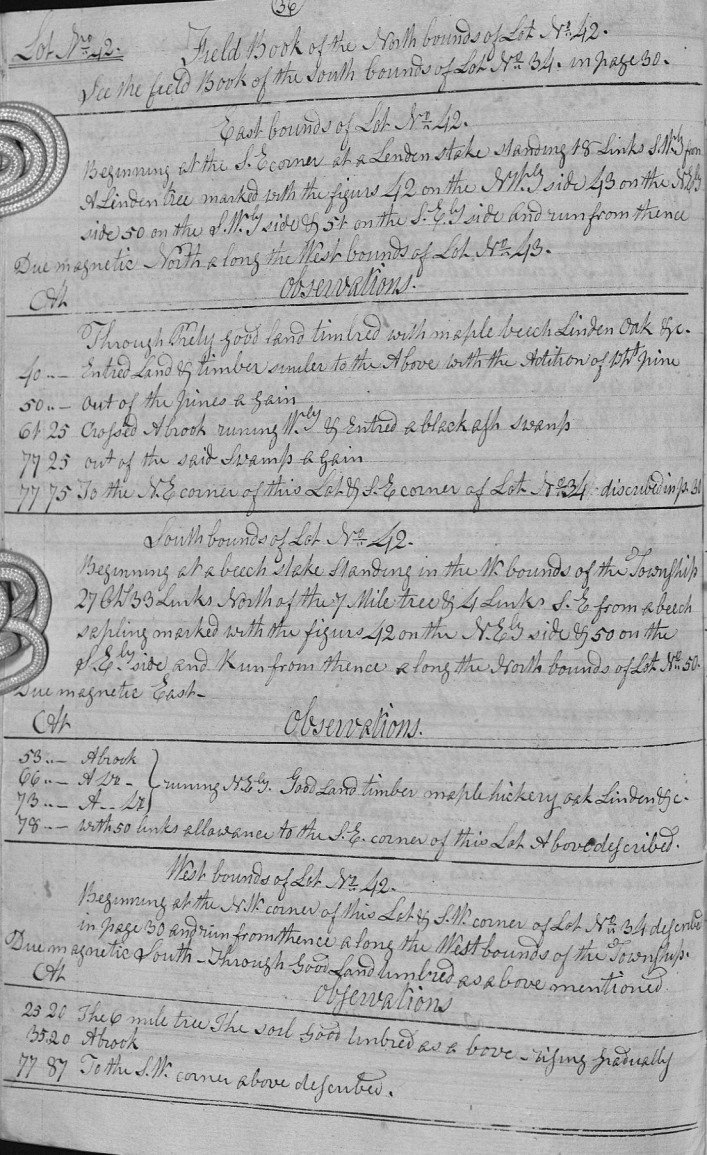 36
Lot No 42.
Field Book of the North bounds of Lot No 42.
See the field Book of the South bounds of Lot No 34. in page 30.
East bounds of Lot No 42.
Beginning at the S. E corner at a Lenden stake standing 18 Links S.Wly from
A Linden tree marked with the figurs 42 on the N.Wly side 43 on the N.Ely
side 50 on the S.Wly side & 51 on the S.Ely side and run from thence
Due magnetic North along the West bounds of Lot No 43.
Observations.
Through Prety good land timbred with maple beech Linden Oak &c.
40 .. - Entred Land & timber similer to the Above with the Adition of pine
50 .. - out of the pines again
61 25 Crossed A brook runing Wly & Entred a black ash swamp
77 25 out of the said Swamp again
77 75 To the N.E corner of this Lot & S.E corner of Lot No 34. discribed in p. 30
South bounds of Lot No 42.
Beginning at a beech stake Standing in the W. bounds of the Township
27 Ch 33 Links North of the 7 Mile tree & 4 Links S.E from a beech
sapling marked with the figurs 42 on the N.Ely side & 50 on the
S.Ely side and Run from thence along the North bounds of Lot No 50.
Due magnetic East -
Observations.
53 .. - A brook
66 .. - A Do -
73 .. - A - Do
runing N.Ely. Good Land timber maple hickery oak Linden &c.
78 - - with 50 links allowance to the S.E. corner of this Lot Above described.
West bounds of Lot No 42.
Beginning at the N.W corner of this Lot & S.W corner of Lot No 34 described
in page 30 and run from thence along the West bounds of the Township.
Due magnetic South - Through Good Land timbred as above mentioned
Observations
25 20 The 6 mile tree The soil Good timbred as above - rising gradually
35 20 A brook
77 87 To the S.W. corner above described.